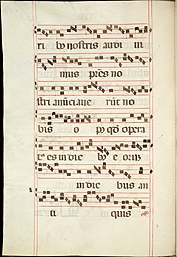 ri bus nostris audi ui
mus pres no
stri annuciaue rūt no
bis o p9 qd opera
t9 es in die b9 e orus
in die bus an
ti quis